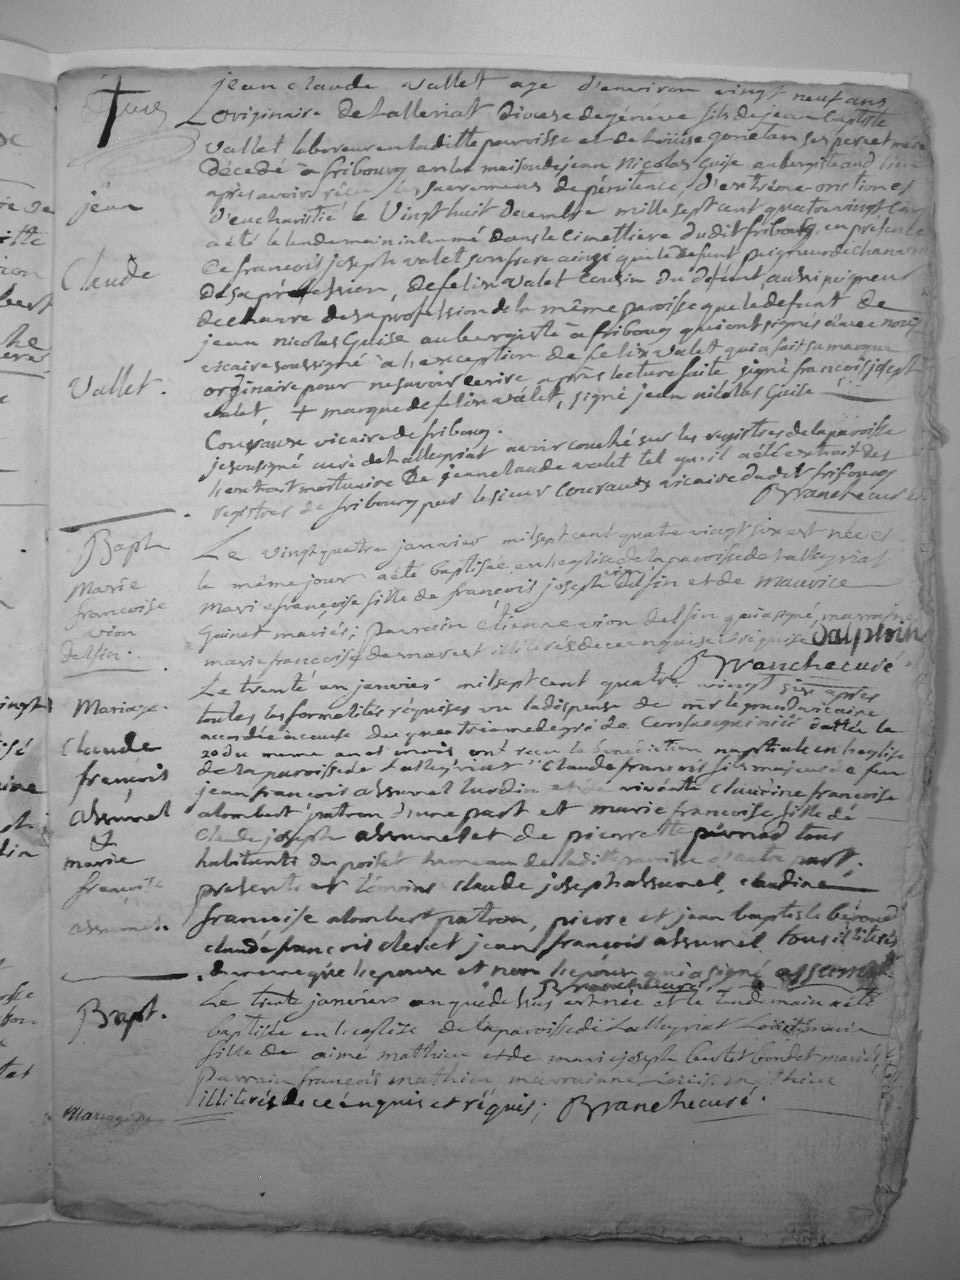 jean claude vallet age d'environ vingt neuf ans
originaire de Lalleriat diocese de géneve fils de jean baptiste
vallet laboureur en laditte parroisse et de Loüise gonelan ses pere et mere
décédé à fribourg en la maison de jean Nicolas Guise aubergiste audit lieu
après avoir réçu les sacremens de pénitence, d'extrême onction et
d'eucharistié le vingt huit decembre mille sept cent quatre vingt cinq
a été le lendemain inhumé dans le cimettiére dudit fribourg en présence
De françois joseph valet son frere ainsi que le défunt peigneur de chanvre
de sa profession, de felix valet cousin du défunt, aussi peigneur
de chanvre de sa profession de la même paroisse que le defunt de
jean nicolas Guise aubergiste à fribourg qui ont signés avec nous
vicaire soussigné à l'exception de felix valet qui a fait sa marque
ordinaire pour ne savoir écrire après lecture faite signé françois joseph
valet + marque de felix valet, signé jean nicolas Guise
Couraux vicaire de fribourg.
je sousigné curé de Lalleyriat avoir couché sur les registres de la paroisse
l'extrait mortuaire De jean claude valet tel qu'il a été extrait des
registres de fribourg par le sieur Couraux vicaire dudit fribourg
Branche curé
jean
Claude
Vallet.
Bapt
Marie
francoise
vion
delfin.
Le vingt quatre janvier mil sept cent quatre vingt six est née et
le même jour a été baptisée en l'eglise de la paroisse de Lalleyriat
Marie françoise fille de françois joseph vion delfin et de maurice
Guinet mariés; parrain etienne vion delfin qui a signé, marraine
marie françoise de maret illiterés de ce enquise et réquise Dalphin
Branche curé
Mariage.
claude
françois
assumel
&
marie
françoise
assumel.
Le trente un janvier mil sept cent quatre vingt six après
toutes les formalités réquises vu la dispense de mr le grand vicaire
accordée à cause du quatrieme degré de consanguinité dattée le
20 du meme an et mois ont reçu la bénédiction nuptiale en l'eglise
de la paroisse de Lalleyriat claude francois fils majeur de feu
jean francois assumel lurdin et de vivante claudine francoise
alombert patron d'une part et marie francoise fille de
claude joseph assumel et de pierrette pernod tous
habitants du poisat hameau de laditte paroisse d'autre part,
presents et témoins claude joseph assumel, claudine
francoise alombert patron, pierre et jean baptiste béroud
claude françois cleret jean françois assumel tous illiterés
de même que l'epouse et non l'epoux qui a signé assumel
Branche curé
Bapt.
Le trente janvier an que dessus est née et le lendemain a été
baptisée en l'eglise de la paroisse de Lalleyriat Loüise marie
fille de aimé mathieu et de marie joseph bertet bondet mariés,
parrain françois mathieu, marraine Loüise mathieu
illiterés de ce énquis et réquis; Branche curé.
Mariage